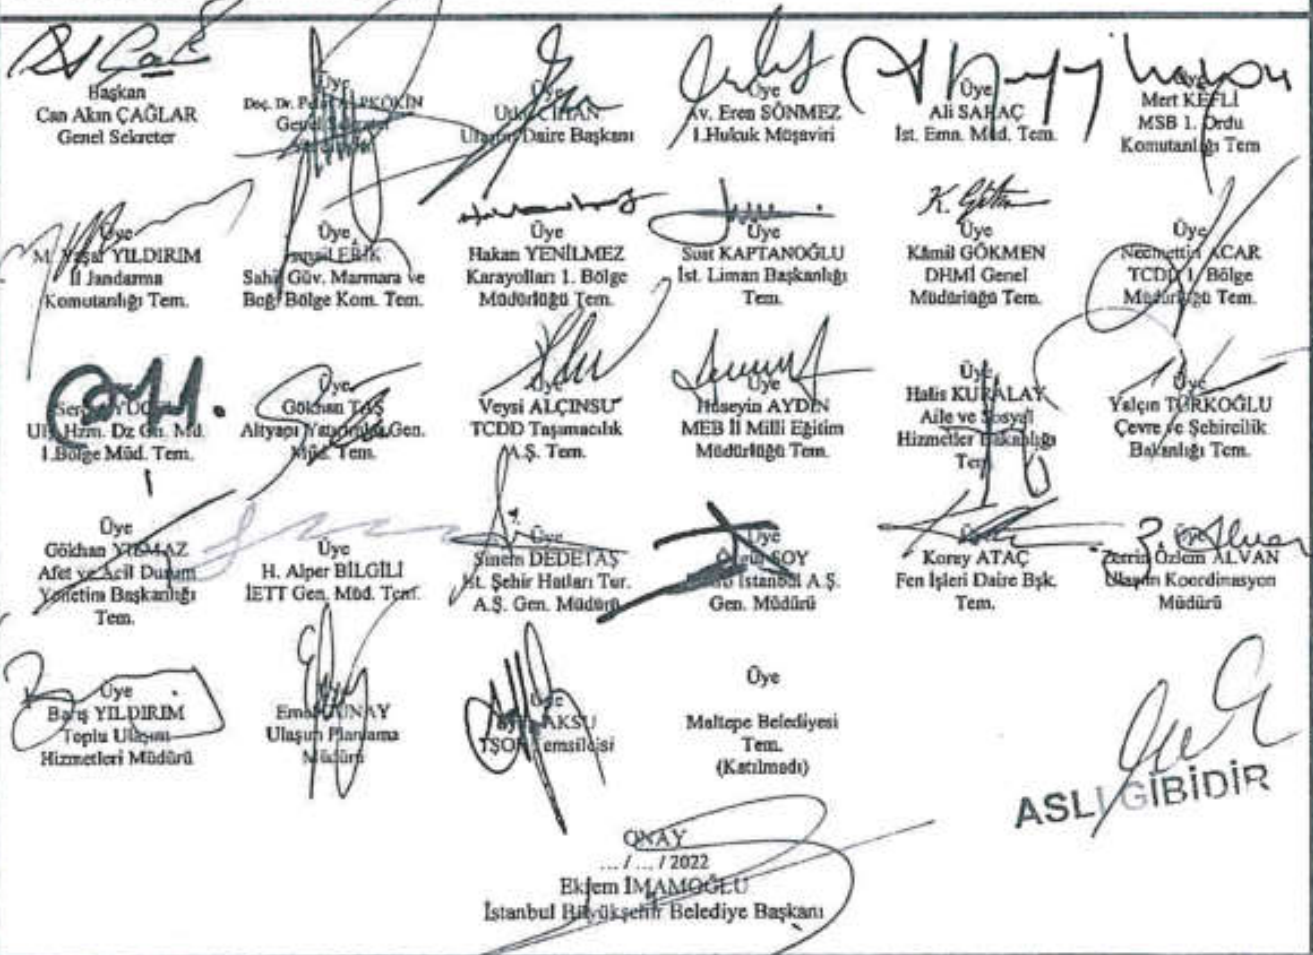 Başkan
Can Akın ÇAĞLAR
Genel Sekreter
Üye
Doç. Dr.
Üye
CİHAN
Ulaşım Daire Başkanı
Üye
Av. Eren SÖNMEZ
1.Hukuk Müşaviri
Üye
Ali SARAÇ
İst. Emn. Müd. Tem.
Üye
Mert KEFLİ
MSB 1. Ordu
Komutanlığı Tem
Üye
M. Yaşar YILDIRIM
İl Jandarma
Komutanlığı Tem.
Üye
Sahil Güv. Marmara ve
Boğ. Bölge Kom. Tem.
Üye
Hakan YENİLMEZ
Karayolları 1. Bölge
Müdürlüğü Tem.
Üye
Suat KAPTANOĞLU
İst. Liman Başkanlığı
Tem.
Üye
Kâmil GÖKMEN
DHMİ Genel
Müdürlüğü Tem.
Üye
Necmettin ACAR
TCDD 1. Bölge
Müdürlüğü Tem.
Ulş. Hzm. Dz Gn. Md.
1.Bölge Müd. Tem.
Üye
Gökhan TAŞ
Altyapı Yatırımlar Gen.
Müd. Tem.
Üye
Veysi ALÇINSU
TCDD Taşımacılık
A.Ş. Tem.
Üye
Hüseyin AYDIN
MEB İl Milli Eğitim
Müdürlüğü Tem.
Üye
Halis KURALAY
Aile ve Sosyal
Hizmetler Bakanlığı
Tem.
Üye
Yalçın TÜRKOĞLU
Çevre ve Şehircilik
Bakanlığı Tem.
Üye
Gökhan YILMAZ
Afet ve Acil Durum
Yönetim Başkanlığı
Tem.
Üye
H. Alper BİLGİLİ
İETT Gen. Müd. Tem.
Üye
Sinem DEDETAŞ
İst. Şehir Hatları Tur.
A.Ş. Gen. Müdürü
Üye
SOY
İstanbul A.Ş.
Gen. Müdürü
Üye
Koray ATAÇ
Fen İşleri Daire Bşk.
Tem.
Üye
Zerrin Özlem ALVAN
Ulaşım Koordinasyon
Müdürü
Üye
Barış YILDIRIM
Toplu Ulaşım
Hizmetleri Müdürü
Ulaşım Planlama
Müdürü
Üye
AKSU
Temsilcisi
Üye
Maltepe Belediyesi
Tem.
(Katılmadı)
ASLI GİBİDİR
ONAY
... / ... / 2022
Ekrem İMAMOĞLU
İstanbul Büyükşehir Belediye Başkanı